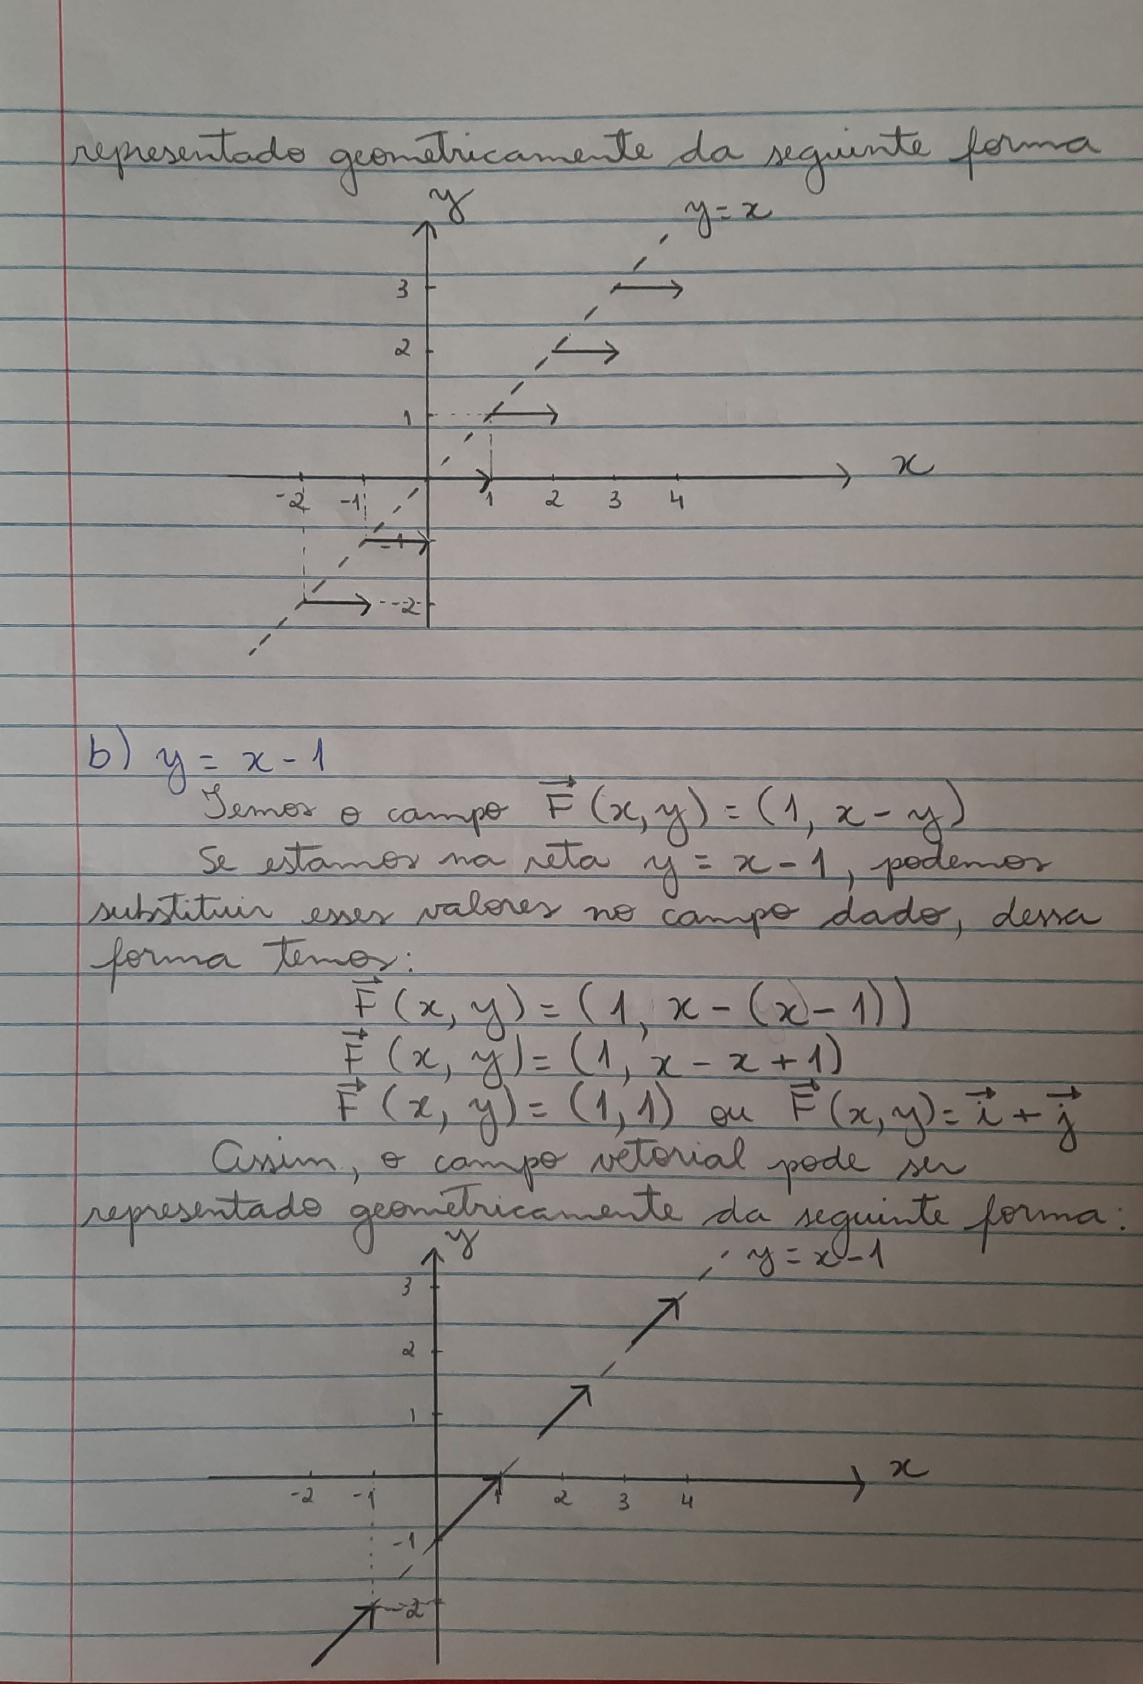 representado geometricamente da seguinte forma
y
y = x
3
2
1
x
-2 -1 1 2 3 4
-1
-2
b) y = x - 1
Temos o campo F⃗ (x, y) = (1, x - y)
Se estamos na reta y = x - 1, podemos
substituir esses valores no campo dado, dessa
forma temos:
F⃗ (x, y) = (1, x - (x - 1))
F⃗ (x, y) = (1, x - x + 1)
F⃗ (x, y) = (1, 1) ou F⃗ (x, y) = i⃗ + j⃗
Assim, o campo vetorial pode ser
representado geometricamente da seguinte forma:
y
y = x - 1
3
2
1
x
-2 -1 1 2 3 4
-1
-2